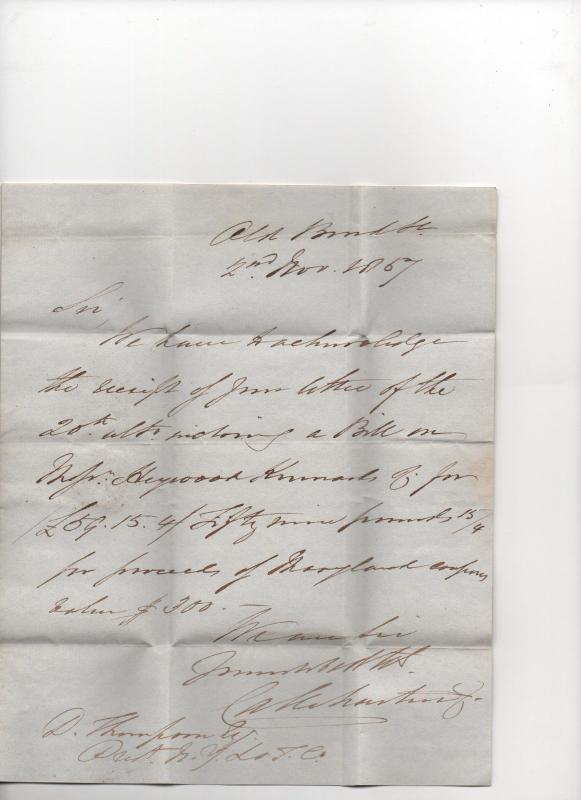 Old Broad St.
2nd Nov. 1857
Sir,
We have to acknowledge
the receipt of your letter of the
20th ulto. inclosing a Bill on
Messrs. Heywood Kennards &c for
/£59. 15. 4/ Fifty nine pounds 15/4
for proceeds of Maryland coupons
value $ 300.-
We are Sir
Your
D. Thompson Esq
Prest. N. Y. L & T. Co.